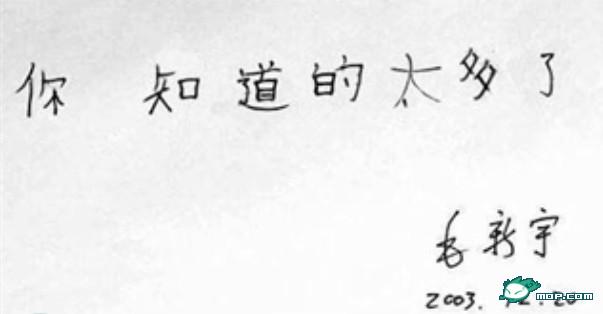 你 知道的太多了
毛新宇
2003. 12. 20
mop.com